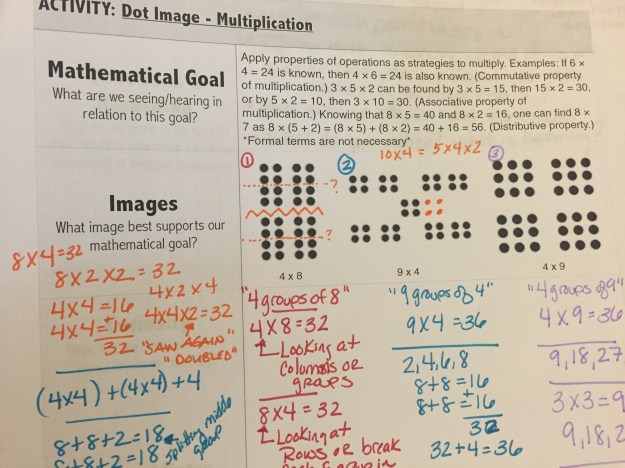 ACTIVITY: Dot Image - Multiplication
Mathematical Goal
What are we seeing/hearing in
relation to this goal?
Apply properties of operations as strategies to multiply. Examples: If 6 ×
4 = 24 is known, then 4 × 6 = 24 is also known. (Commutative property
of multiplication.) 3 × 5 × 2 can be found by 3 × 5 = 15, then 15 × 2 = 30,
or by 5 × 2 = 10, then 3 × 10 = 30. (Associative property of
multiplication.) Knowing that 8 × 5 = 40 and 8 × 2 = 16, one can find 8 ×
7 as 8 × (5 + 2) = (8 × 5) + (8 × 2) = 40 + 16 = 56. (Distributive property.)
*Formal terms are not necessary*
10x4 = 5x4x2
1
2
3
?
?
Images
What image best supports our
mathematical goal?
4 x 8
9 x 4
4 x 9
8x4=32
8x2x2=32
4x4=16
4x4=16
+
32
4x2x4
4x4x2=32
"SAW AGAIN"
"DOUBLED"
(4x4)+(4x4)+4
8+8+2=18
8+8+2=18
splitting middle
group
"4 groups of 8"
4x8=32
Looking at
Columns or
groups
8x4=32
Looking at
Rows or break
"9 groups of 4"
9x4=36
2,4,6,8
8+8=16
8+8=16
+
32
32+4=36
"4 groups of 9"
4x9=36
9,18,27
3x3=9
9,18,2